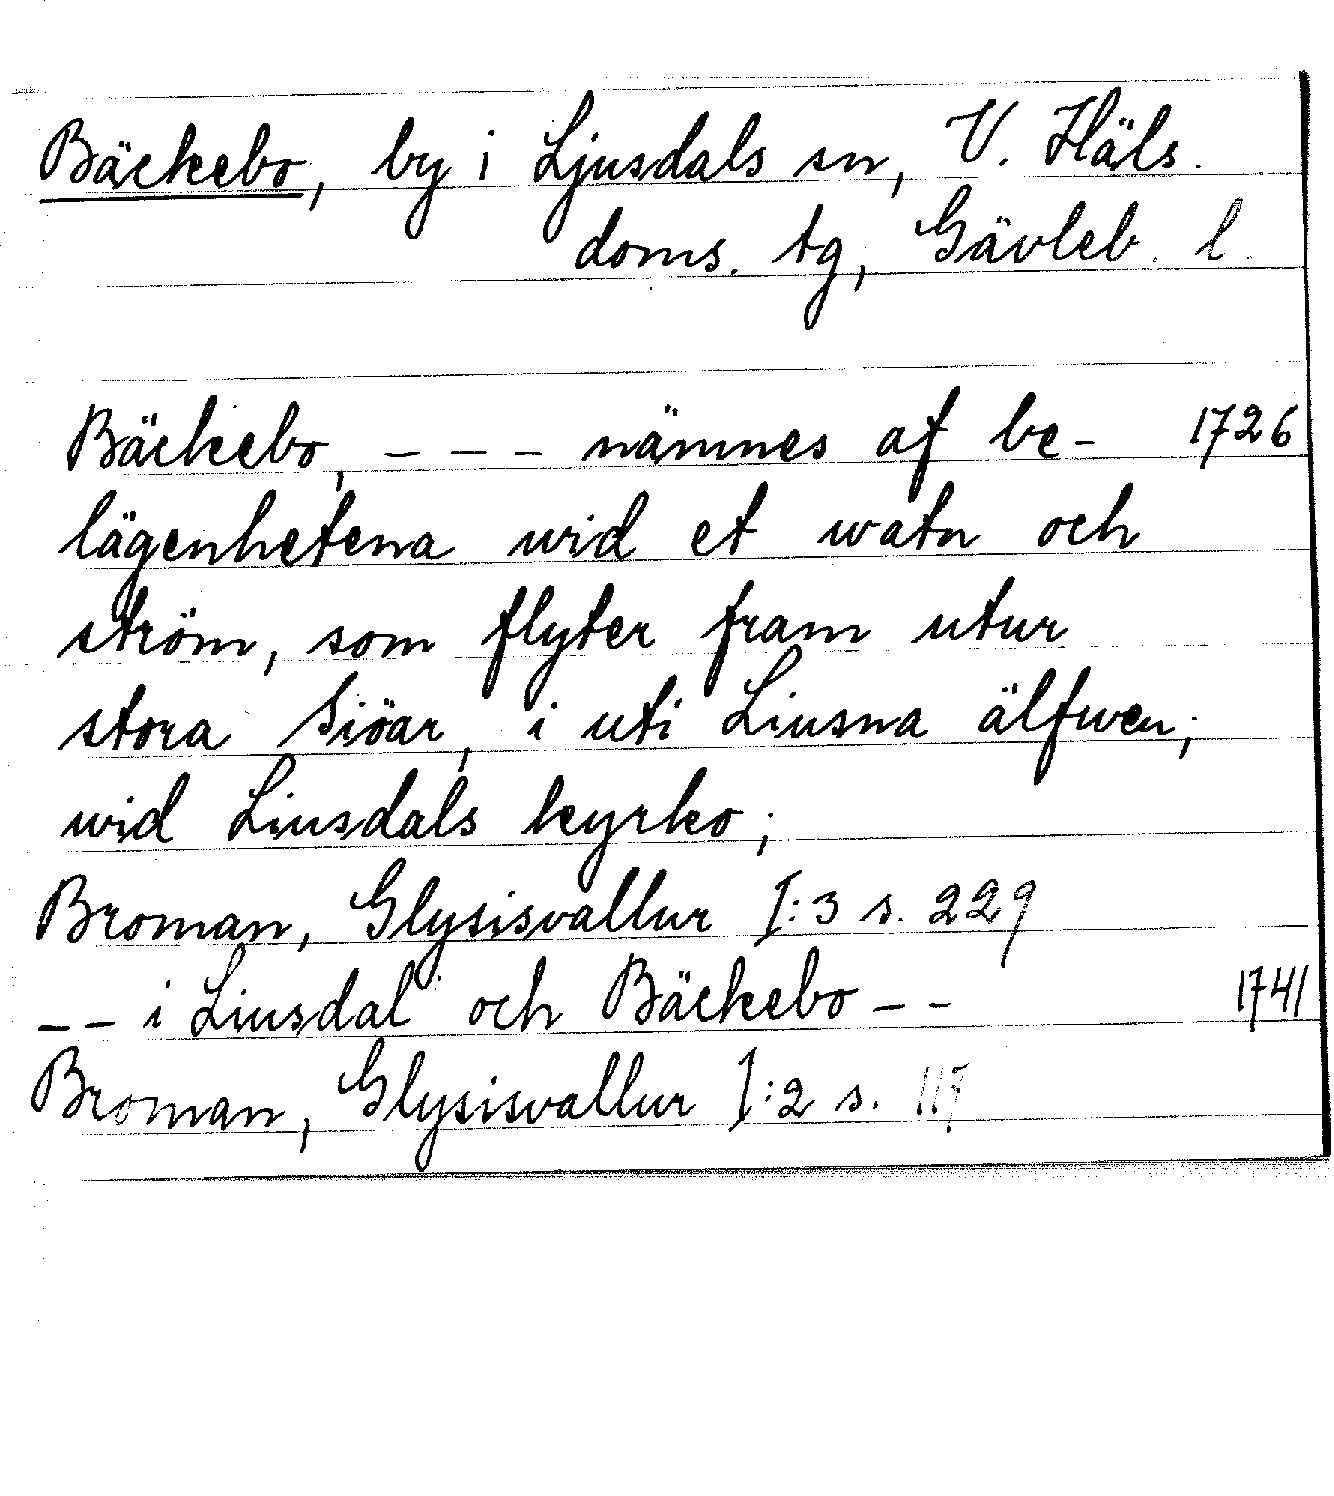 Bäckebo, by i Ljusdals sn, V. Häls.
doms. tg, Gävleb. l.
Bäckebo, - - - nämnes af be- 1726
lägenhetena wid et watn och
ström, som flyter fram utur
stora Siöar, i uti Liusna älfwen;
wid Liusdals kyrko;
Broman, Glysisvallur I:3 s. 229
-- i Liusdal och Bäckebo -- 1741
Broman, Glysisvallur I:2 s. 117